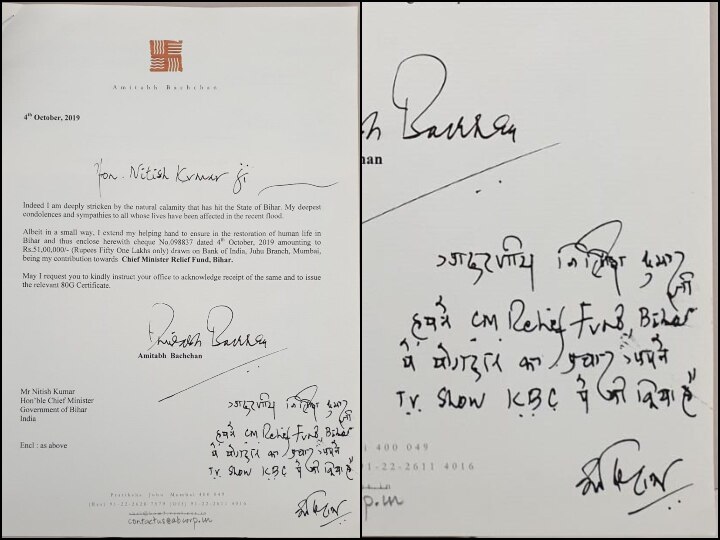 Amitabh Bachchan
4th October, 2019
Hon. Nitish Kumar Ji
Indeed I am deeply stricken by the natural calamity that has hit the State of Bihar. My deepest
condolences and sympathies to all whose lives have been affected in the recent flood.
Albeit in a small way, I extend my helping hand to ensure in the restoration of human life in
Bihar and thus enclose herewith cheque No.098837 dated 4th October, 2019 amounting to
Rs.51,00,000/- (Rupees Fifty One Lakhs only) drawn on Bank of India, Juhu Branch, Mumbai,
being my contribution towards Chief Minister Relief Fund, Bihar.
May I request you to kindly instruct your office to acknowledge receipt of the same and to issue
the relevant 80G Certificate.
Amitabh Bachchan
Amitabh Bachchan
Mr Nitish Kumar
Hon'ble Chief Minister
Government of Bihar
India
Encl : as above
आदरणीय नितिश कुमार
जी
हमने CM Relief Fund, Bihar
में योगदान का प्रचार अपने
T.V. Show KBC में भी किया है
अमिताभ
Pratiksha Juhu Mumbai 400 049
contactus@abcorp.in
Bachchan
han
आदरणीय नितिश कुमार
जी
हमने CM Relief Fund, Bihar
में योगदान का प्रचार अपने
T.V. Show KBC में भी किया है
i 400 049
91-22-2611 4016
अमिताभ
rp.in